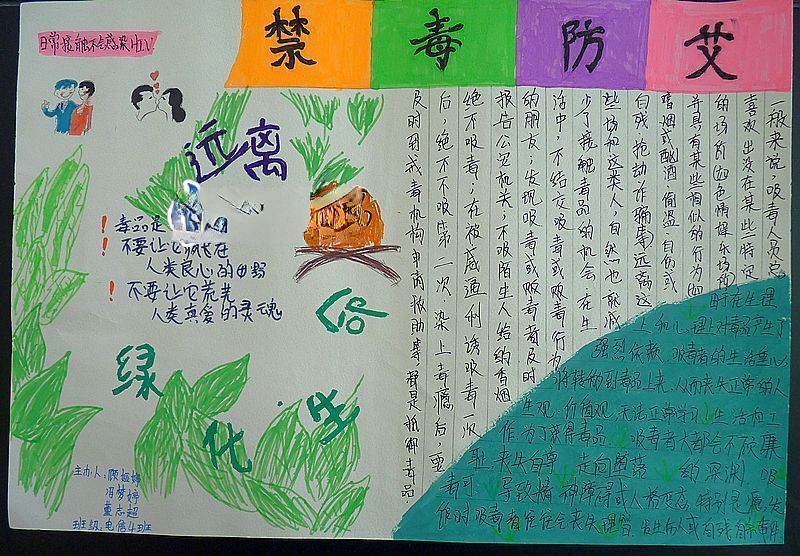 禁毒防艾
日常接触不会感染HIV
远离
毒品是
！不要让它疯长在
人类良心的田野
！不要让它荒芜
人类真爱的灵魂
绿化生命
主办人：顾
冯梦婷
董志超
班级：电信4班
一般来说，吸毒人员总
喜欢出没在某些特定
的场所如色情娱乐场所
并具有某些相似的行为如
嗜烟或酗酒、偷盗、自伤或
自残、抢劫诈骗等远离这
些场和这类人，自然也就减
少了接触毒品的机会，在生
活中，不结交吸毒或贩毒行为
的朋友；发现吸毒或贩毒者及时
报告公安机关；不吸陌生人给的香烟
绝不吸毒；在被威逼利诱吸毒一次
后，绝不吸第二次，染上毒瘾后，要
及时到戒毒机构申请救助等都是抵御毒品
由于在生理
上和心理上对毒品产生了
强烈依赖，吸毒者的生活重心
将转移到毒品上来，从而丧失正常的人
生观、价值观，无法正常学习、生活和工
作，为了获得毒品，吸毒者大都会不顾廉
耻，丧失自尊，走向堕落的深渊，吸
毒可导致精神障碍或人格变态，特别是瘾发
作时吸毒者往往会丧失理智，发生伤人或自残自杀事件